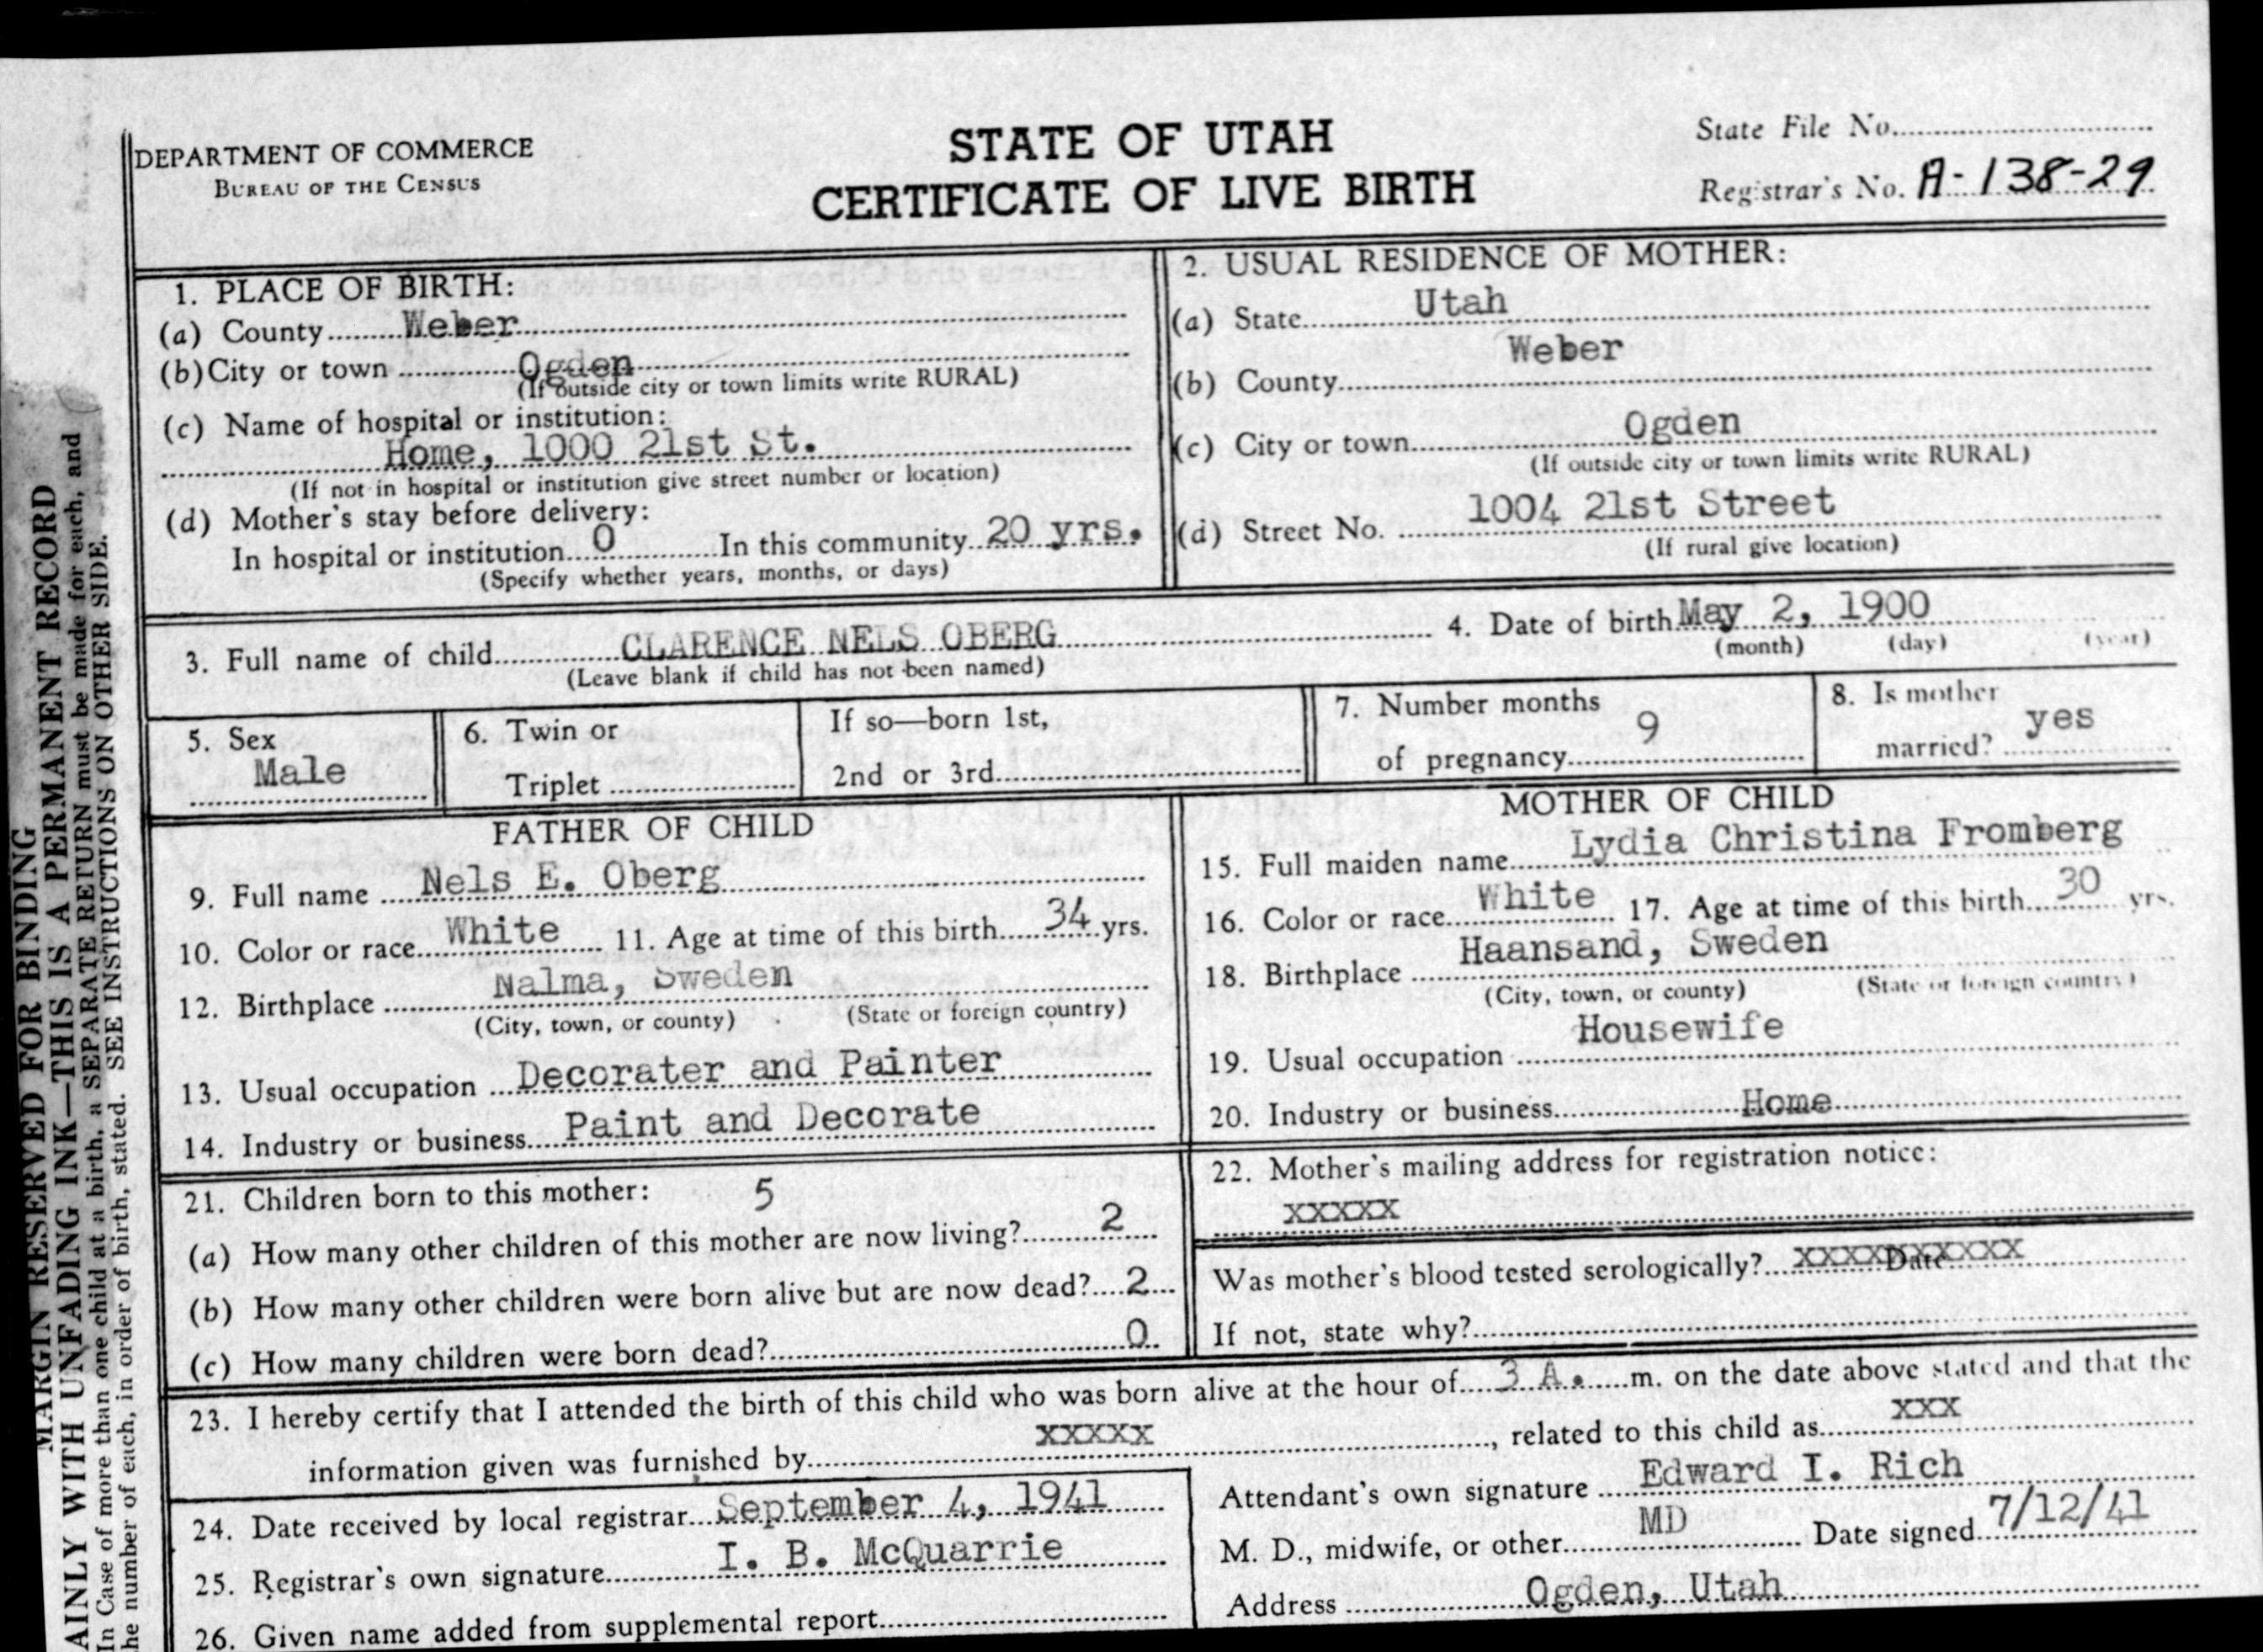 DEPARTMENT OF COMMERCE
BUREAU OF THE CENSUS
STATE OF UTAH
CERTIFICATE OF LIVE BIRTH
State File No.
Registrar's No. A-138-29
1. PLACE OF BIRTH:
(a) County Weber
(b) City or town Ogden
(If outside city or town limits write RURAL)
(c) Name of hospital or institution:
Home, 1000 21st St.
(If not in hospital or institution give street number or location)
(d) Mother's stay before delivery:
In hospital or institution 0 In this community 20 yrs.
(Specify whether years, months, or days)
2. USUAL RESIDENCE OF MOTHER:
(a) State Utah
(b) County Weber
(c) City or town Ogden
(If outside city or town limits write RURAL)
(d) Street No. 1004 21st Street
(If rural give location)
3. Full name of child CLARENCE NELS OBERG 4. Date of birth May 2, 1900
(Leave blank if child has not been named) (month) (day) (year)
5. Sex
Male
6. Twin or
Triplet
If so—born 1st,
2nd or 3rd
7. Number months
of pregnancy 9
8. Is mother
married? yes
FATHER OF CHILD
9. Full name Nels E. Oberg
10. Color or race White 11. Age at time of this birth 34 yrs.
12. Birthplace Nalma, Sweden
(City, town, or county) (State or foreign country)
13. Usual occupation Decorater and Painter
14. Industry or business Paint and Decorate
MOTHER OF CHILD
15. Full maiden name Lydia Christina Fromberg
16. Color or race White 17. Age at time of this birth 30 yrs.
18. Birthplace Haansand, Sweden
(City, town, or county) (State or foreign country)
19. Usual occupation Housewife
20. Industry or business Home
21. Children born to this mother: 5
(a) How many other children of this mother are now living? 2
(b) How many other children were born alive but are now dead? 2
(c) How many children were born dead? 0
22. Mother's mailing address for registration notice:
XXXXX
Was mother's blood tested serologically? XXXXXXXXXX Date
If not, state why?
23. I hereby certify that I attended the birth of this child who was born alive at the hour of 3 A. m. on the date above stated and that the
information given was furnished by XXXXX, related to this child as XXX
24. Date received by local registrar September 4, 1941
25. Registrar's own signature I. B. McQuarrie
26. Given name added from supplemental report
Attendant's own signature Edward I. Rich
M. D., midwife, or other MD Date signed 7/12/41
Address Ogden, Utah
MARGIN RESERVED FOR BINDING
AINLY WITH UNFADING INK—THIS IS A PERMANENT RECORD
In Case of more than one child at a birth, a SEPARATE RETURN must be made for each, and
he number of each, in order of birth, stated. SEE INSTRUCTIONS ON OTHER SIDE.